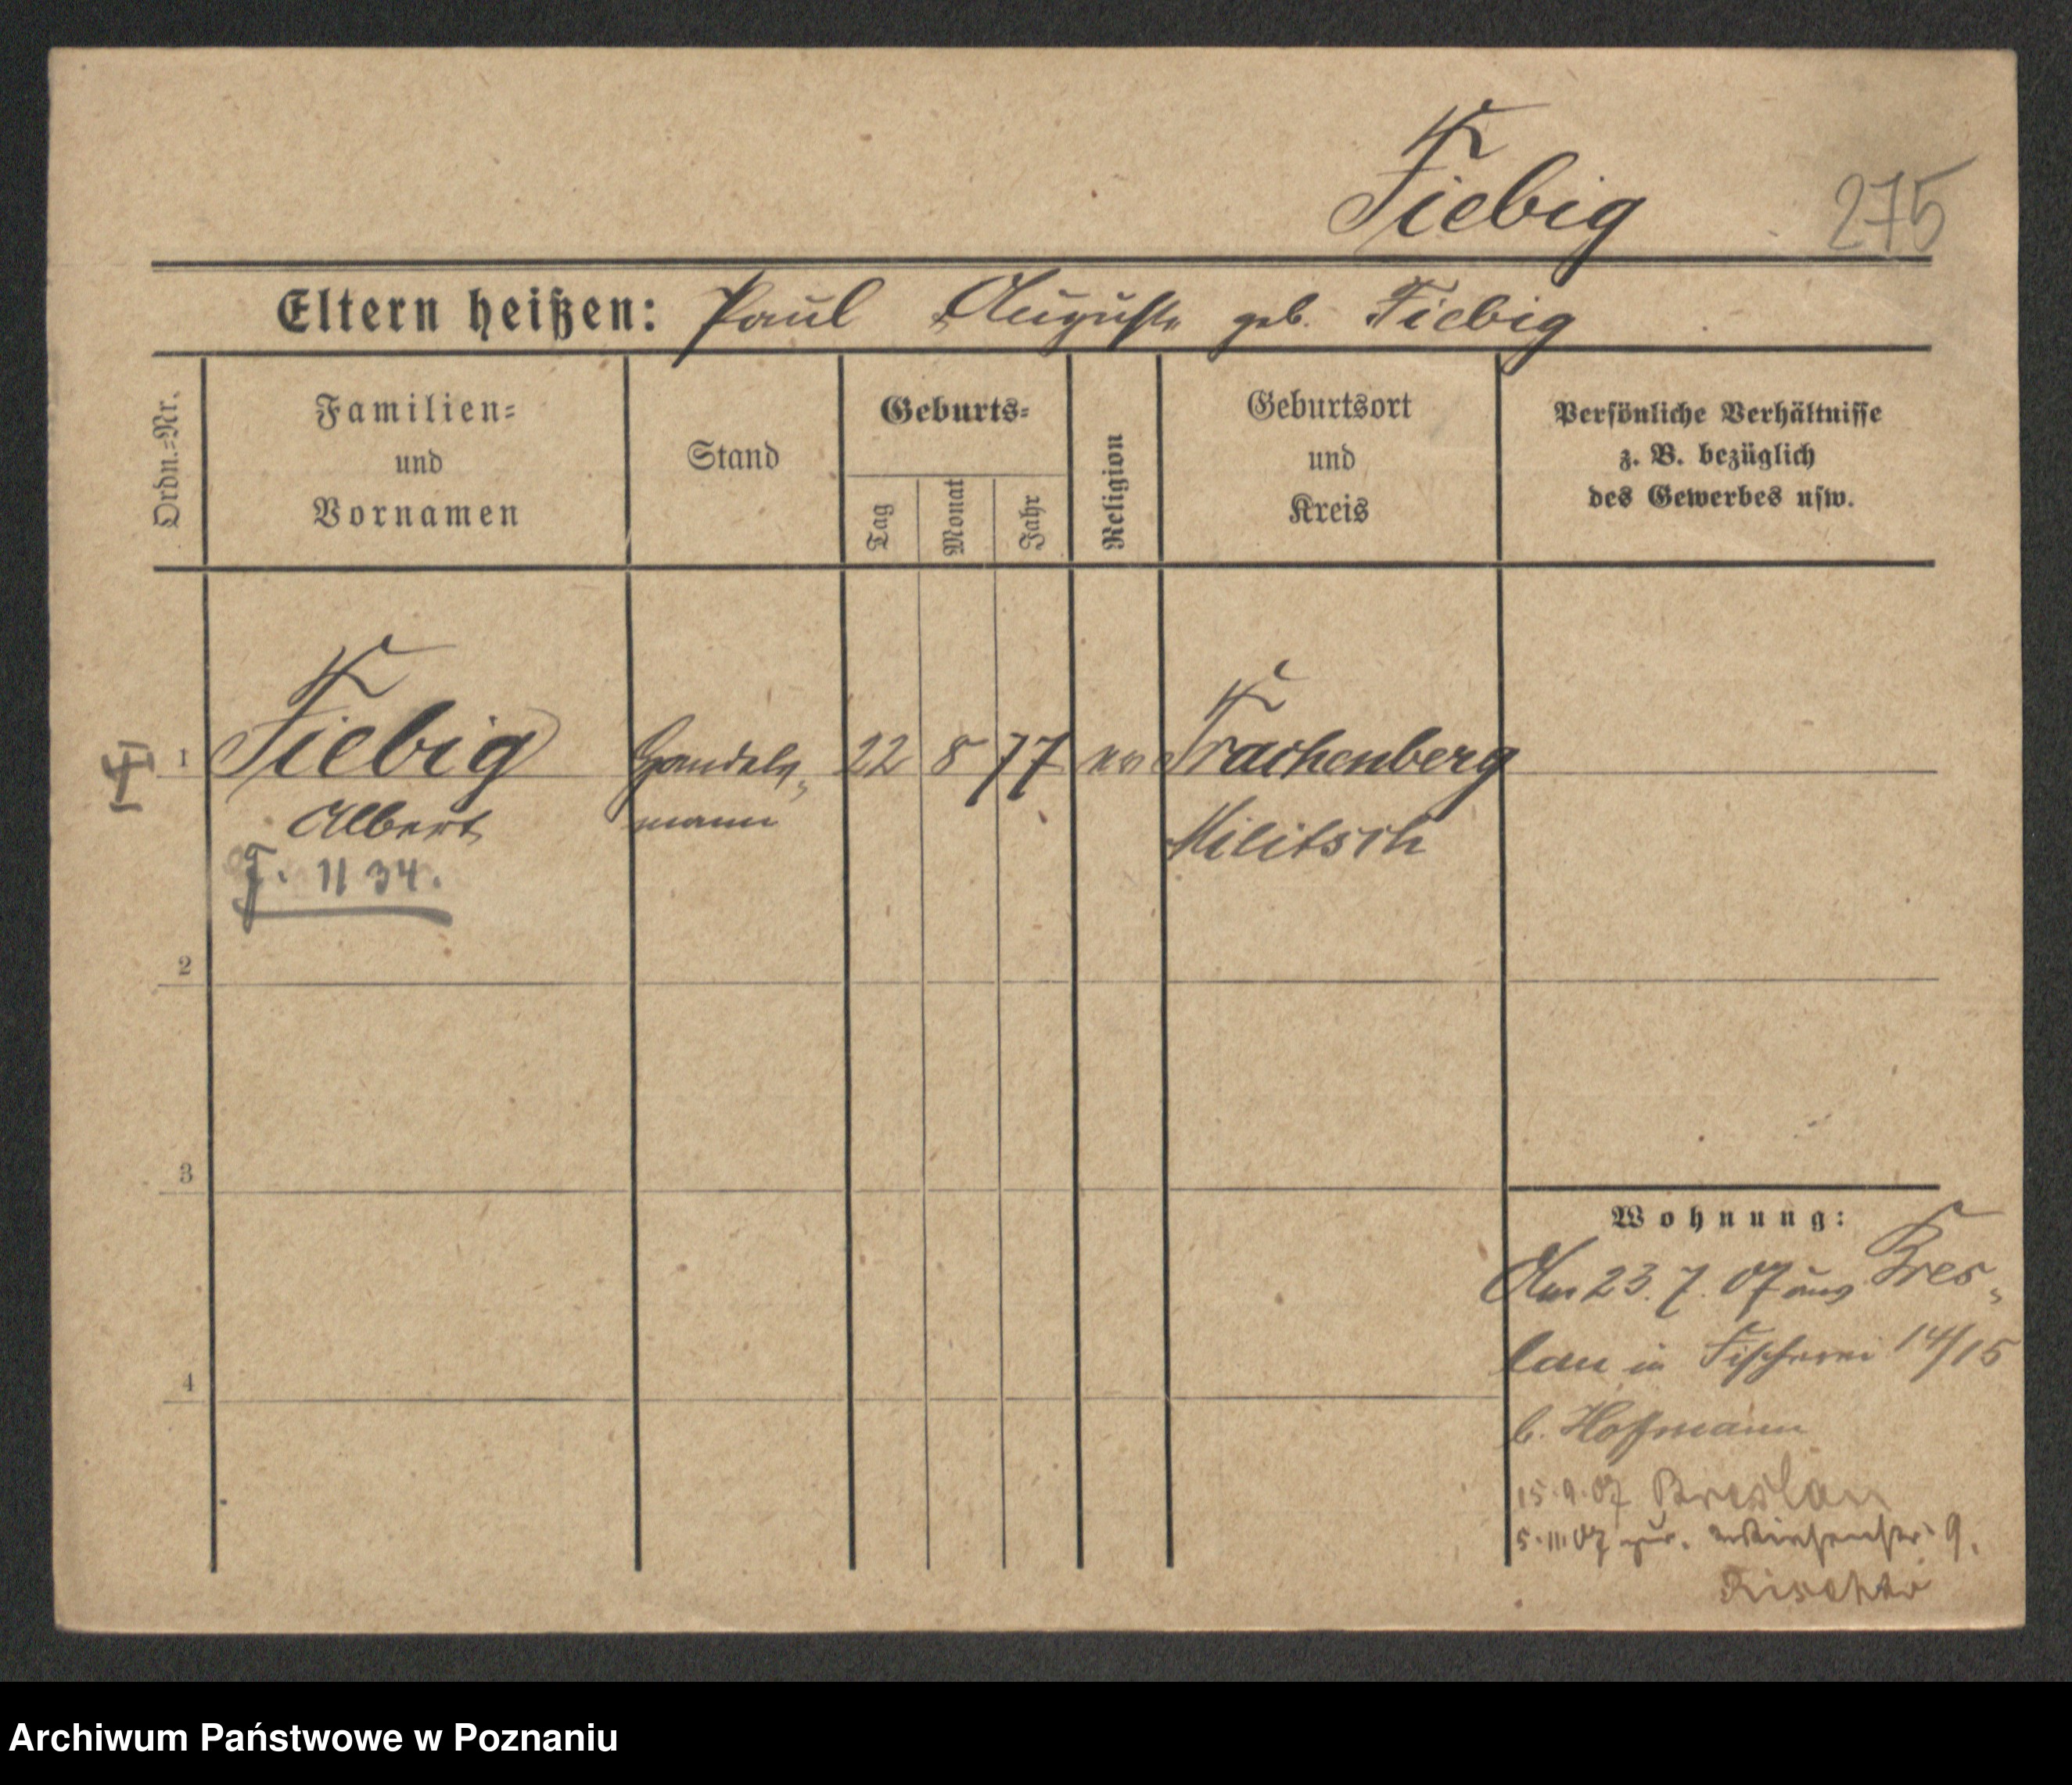 Fiebig
275
Eltern heißen: Paul Auguste geb. Fiebig
Ordn.=Nr.
Familien=
und
Vornamen
Stand
Geburts=
Tag
Monat
Jahr
Religion
Geburtsort
und
Kreis
Persönliche Verhältnisse
z. B. bezüglich
des Gewerbes usw.
1 Fiebig Handels„ 22 8 77 ev Trachenberg
Albert mann Militsch
F. 1134.
2
3
4
Wohnung:
Am 23. 7. 07 aus Bres„
lau in Fischerei 14/15
b. Hoffmann
15.9.07 Breslau
5.11.07 zur. 9.